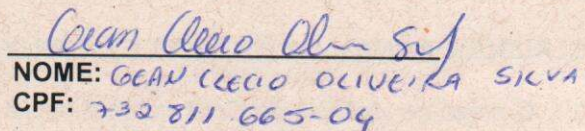 Gean Clecio Oliv Silv
NOME: GEAN CLECIO OLIVEIRA SILVA
CPF: 732 811 665-04